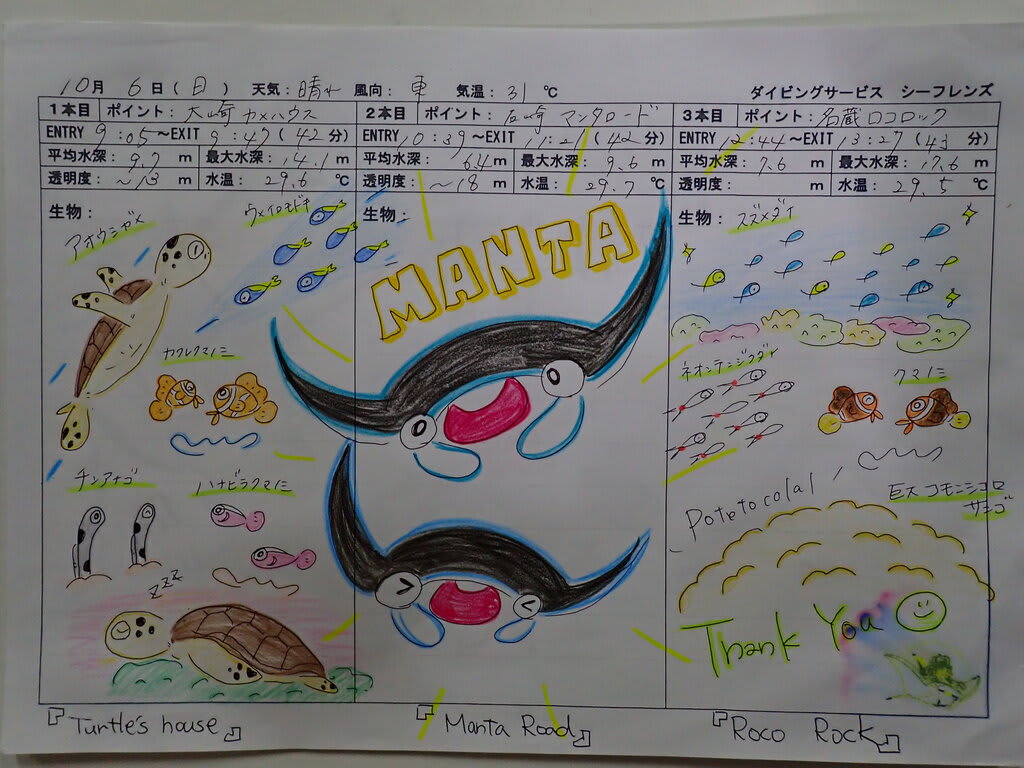 10月 6日(日) 天気:晴れ 風向:東 気温:31℃ ダイビングサービス シーフレンズ
1本目 ポイント:大崎カメハウス
ENTRY 9:05~EXIT 9:47(42分)
平均水深:9.7m 最大水深:14.1m
透明度:~13m 水温:29.6℃
生物:
アオウミガメ
ウメイロモドキ
カクレクマノミ
チンアナゴ
ハナビラクマノミ
zzz
『Turtle's house』
2本目 ポイント:石崎 マンタロード
ENTRY 10:39~EXIT 11:21(42分)
平均水深:6.4m 最大水深:9.6m
透明度:~18m 水温:29.7℃
生物:
MANTA
『Manta Road』
3本目 ポイント:名蔵ロコロック
ENTRY 12:44~EXIT 13:27(43分)
平均水深:7.6m 最大水深:17.6m
透明度: m 水温:29.5℃
生物:
スズメダイ
ネオンテンジクダイ
クマノミ
Potetocolal
巨大コモンシコロ
サンゴ
Thank You
『Roco Rock』